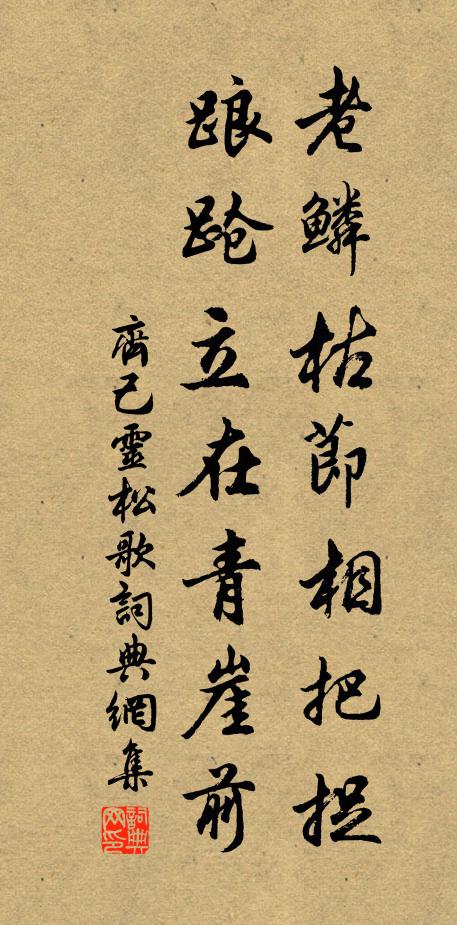 老鱗枯節相把捉
踉蹌立在青崖前
齊己靈松歌詞典網集
詞典
网印